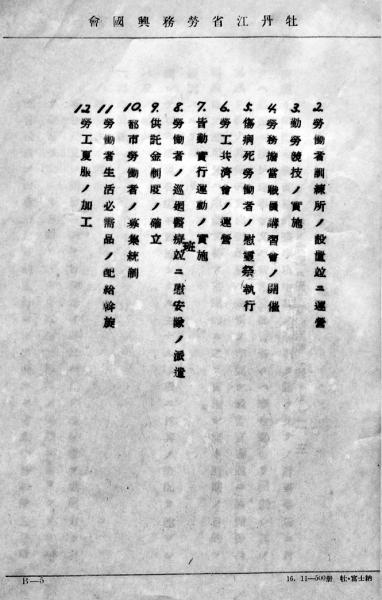 牡丹江省勞務興國會
2. 勞働者訓練所ノ設置竝ニ運營
3. 勤勞競技ノ實施
4. 勞務擔當職員講習會ノ開催
5. 傷病死勞働者ノ慰靈祭執行
6. 勞工共濟會ノ運營
7. 皆勤實行運動ノ實施
8. 勞働者ノ巡廻醫療班竝ニ慰安隊ノ派遣
9. 供託金制度ノ確立
10. 都市勞働者ノ募集統制
11. 勞働者生活必需品ノ配給斡旋
12. 勞工夏服ノ加工
B—5
16. 11—500册 牡・富士納